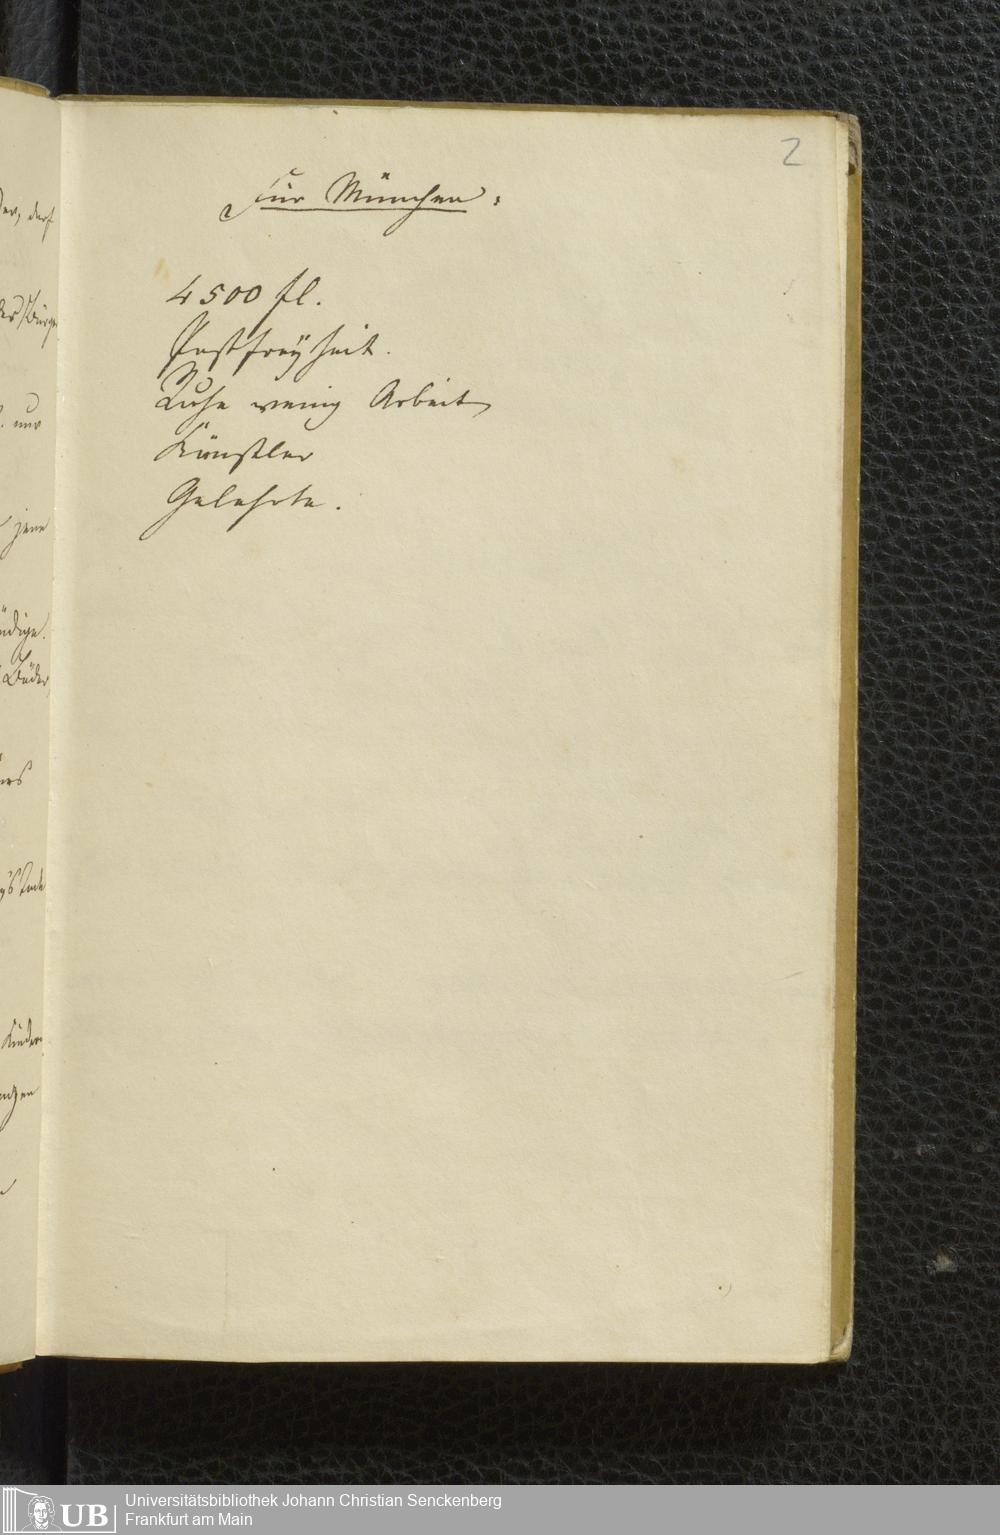 2
Für München:
4500 fl.
Postfreyheit.
Ruhe wenig Arbeit
Künstler
Gelehrte.
nur
jene
Bäder
Kinder
UB
Universitätsbibliothek Johann Christian Senckenberg
Frankfurt am Main